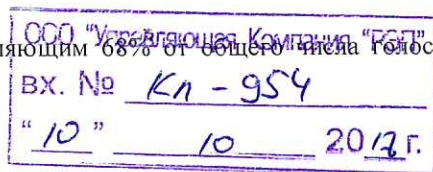 ООО "Управляющая Компания "
ляющим 68% от общего числа голос
ВХ. № Кп - 954
" 10 " 10 2017 г.